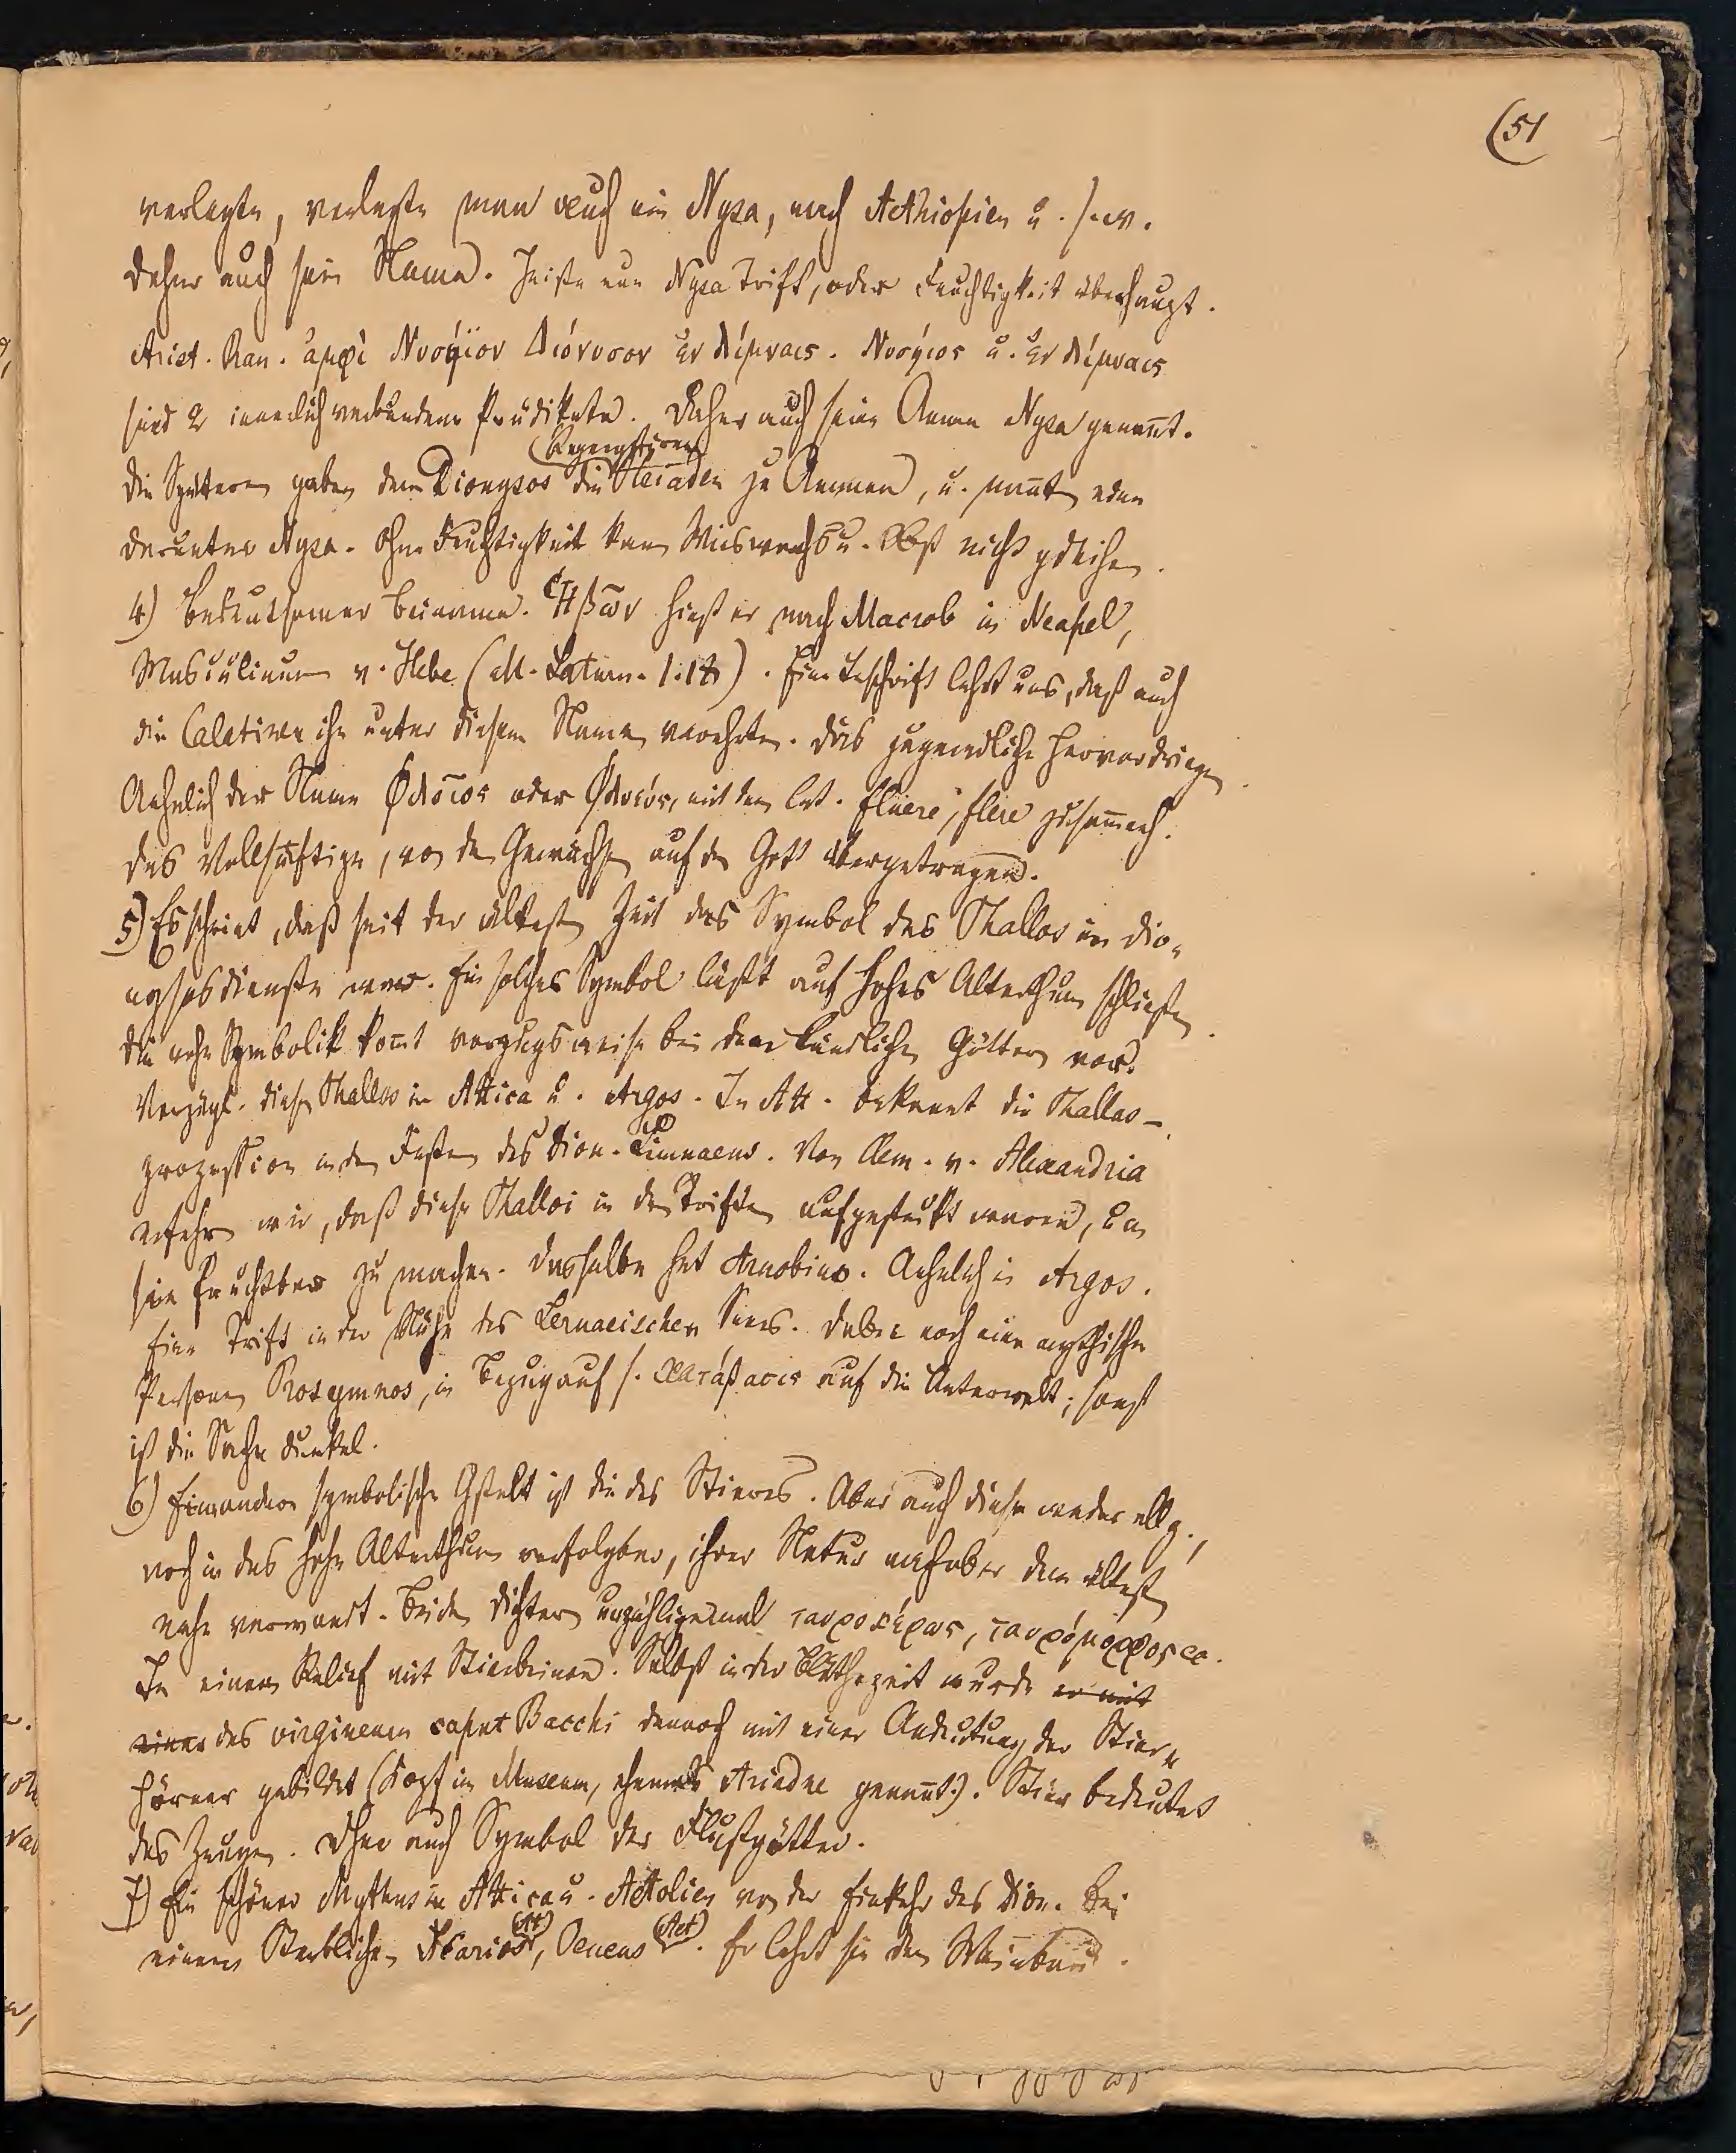 (51
verlegte, verlegte man auch ein Nysa, nach Aethiopien u. s. w.
Daher auch sein Name. Heiße nun Nysa Trift, oder Feuchtigkeit überhaupt.
Arist. Ran. ἀμφὶ Νυσήϊον Διόνυσον ἐν Λίμναις. Νυσήιος u. ἐν Λίμναις
sind 2 innerlich verbundene Prädikate. Daher auch seine Amme Nysa genannt.
(Regengestirne)
Die Spätern gaben dem Dionysos die Hyaden zu Ammen, u. nannten eine
darunter Nysa. Ohne Feuchtigkeit kann Miswachs u. Obst nicht gdeihen.
4) Bedeutsamer Beiname. Ἡβῶν hieß er nach Macrob in Neapel,
Masculinum v. Hebe (M. Saturn. 1.18). Eine Inschrift lehrt uns, daß auch
die Calatiner ihn unter diesem Namen verehrten. Das jugendliche Hervordringen.
Aehnlich der Name Φλοῖος oder Φλυεύς, mit dem lat. fluere, flere zusammenh.
Das Vollsaftige, von den Gewächsen auf den Gott übergetragen.
5) Es scheint, daß seit der ältesten Zeit das Symbol des Phallos im Dio-
nysosdienste war. Ein solches Symbol läßt auf hohes Alterthum schließen.
Die rohe Symbolik kommt vorzugsweise bei den ländlichen Göttern vor.
Vorzügl. dieser Phallos in Attica u. Argos. In Att. bekannt die Phallos-
prozession in den Festen des Dion. Limnaeus. Von Clem. v. Alexandria
erfahren wir, daß diese Phalloi in den Triften aufgesteckt waren, um
sie fruchtbar zu machen. Dasselbe hat Arnobius. Aehnlich in Argos.
Eine Trift in der Nähe des Lernaeischen Sees. Dabei noch eine mythische
Person Prosymnos, in Bezug auf s. κατάβασις auf die Unterwelt; sonst
ist die Sache dunkel.
6) Eine andere symbolische Gestalt ist die des Stieres. Aber auch diese weder allg.,
noch in das hohe Alterthum verfolgbar, ihrer Natur nach aber dem ältesten
nahe verwandt. Bei den Dichtern unzähligemal ταυροκέρως, ταυρόμορφος ꝛc.
In einem Relief mit Stierbeinen. Selbst in der Blüthezeit wurde er mit
einer das virgineum caput Bacchi dennoch mit einer Andeutung der Stier-
hörner gebildet (Kopf im Museum, ehemals Ariadne genannt). Stier bedeutet
das Zeugen. Daher auch Symbol der Flußgötter.
7) Ein schöner Mythus in Attica u. Aetolien von der Einkehr des Dion. bei
einem Sterblichen Ikarios (Att), Oeneus (Aet). Er lehrt sie den Weinbau.